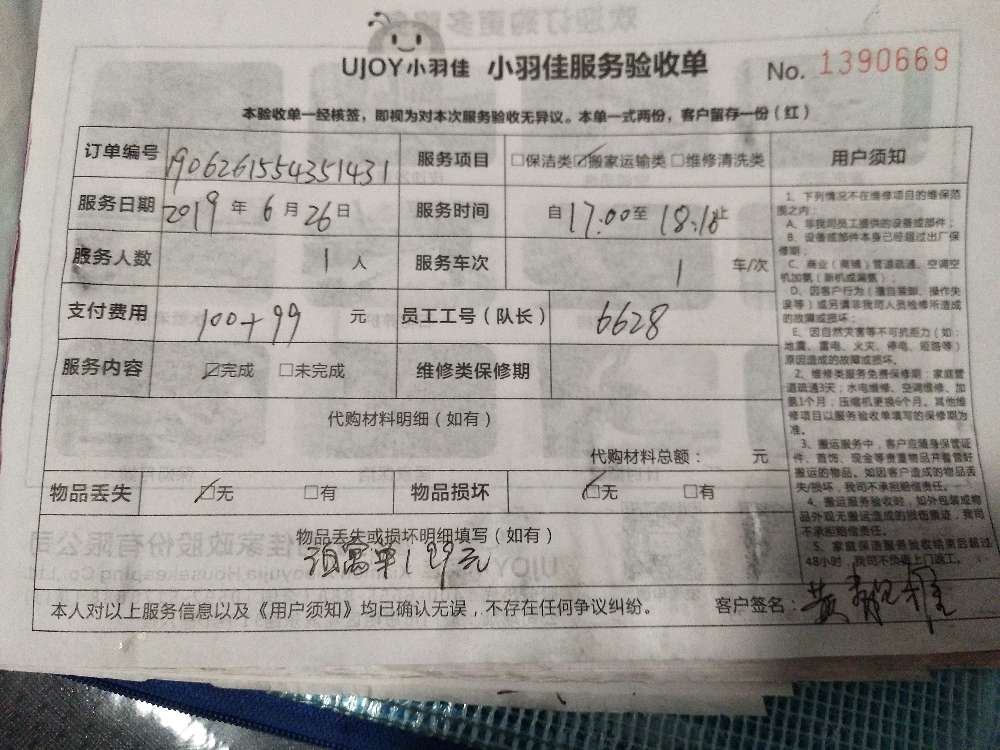 UJOY小羽佳 小羽佳服务验收单 No. 1390669
本验收单一经核签，即视为对本次服务验收无异议。本单一式两份，客户留存一份（红）
订单编号 190626155435​1431 服务项目 □保洁类☑搬家运输类□维修清洗类
服务日期 2019 年 6 月 26 日 服务时间 自 17:00 至 18:18 止
服务人数 1 人 服务车次 1 车/次
支付费用 100+99 元 员工工号（队长） 6628
服务内容 ☑完成 □未完成 维修类保修期
代购材料明细（如有）
代购材料总额： 元
物品丢失 ☑无 □有 物品损坏 ☑无 □有
物品丢失或损坏明细填写（如有）
199元
本人对以上服务信息以及《用户须知》均已确认无误，不存在任何争议纠纷。 客户签名：黄
用户须知
1、下列情况不在维修项目的维保范
围之内：
A、非我司员工提供的设备或部件；
B、设备或部件本身已经超过出厂保
修期；
C、商业（商铺）管道疏通、空调空
机加氟（新机或漏氟）；
D、因客户行为（擅自装卸、操作失
误等）或另请非我司人员检修所造成
的故障或损坏；
E、因自然灾害等不可抗力（如：
地震、雷电、火灾、停电、短路等）
原因造成的故障或损坏。
2、维修类服务免费保修期：家庭管
道疏通3天；水电维修、空调维修、加
氟1个月；压缩机更换6个月。其他维
修项目以服务验收单填写的保修期为
准。
3、搬运服务中，客户应随身保管证
件、首饰、现金等贵重物品并看管好
搬运的物品。如因客户造成的物品丢
失/损坏，我司不承担赔偿责任。
4、搬运服务验收时，如外包装或物
品外观无搬运造成的损伤痕迹，我司
不承担赔偿责任。
5、家庭保洁服务验收结束后超过
48小时，我司不负责上门返工。